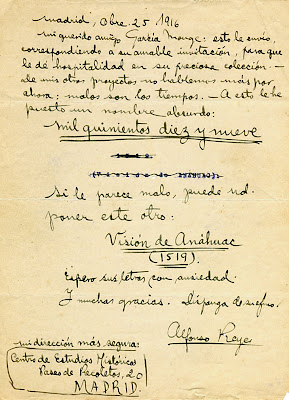 Madrid, Obre. 25, 1916
Mi querido amigo García Monge: esto le envío,
correspondiendo a su amable invitación, para que
le dé hospitalidad en su preciosa colección. —
De mis otros proyectos no hablemos más por
ahora: malos son los tiempos. — A esto le he
puesto un nombre absurdo:
mil quinientos diez y nueve
Si le parece malo, puede ud.
poner este otro:
Visión de Anáhuac
(1519).
Espero sus letras con ansiedad.
Y muchas gracias. Disponga de su afmo.
Alfonso Reyes
mi dirección más segura:
Centro de Estudios Históricos
Paseo de Recoletos, 20
MADRID.